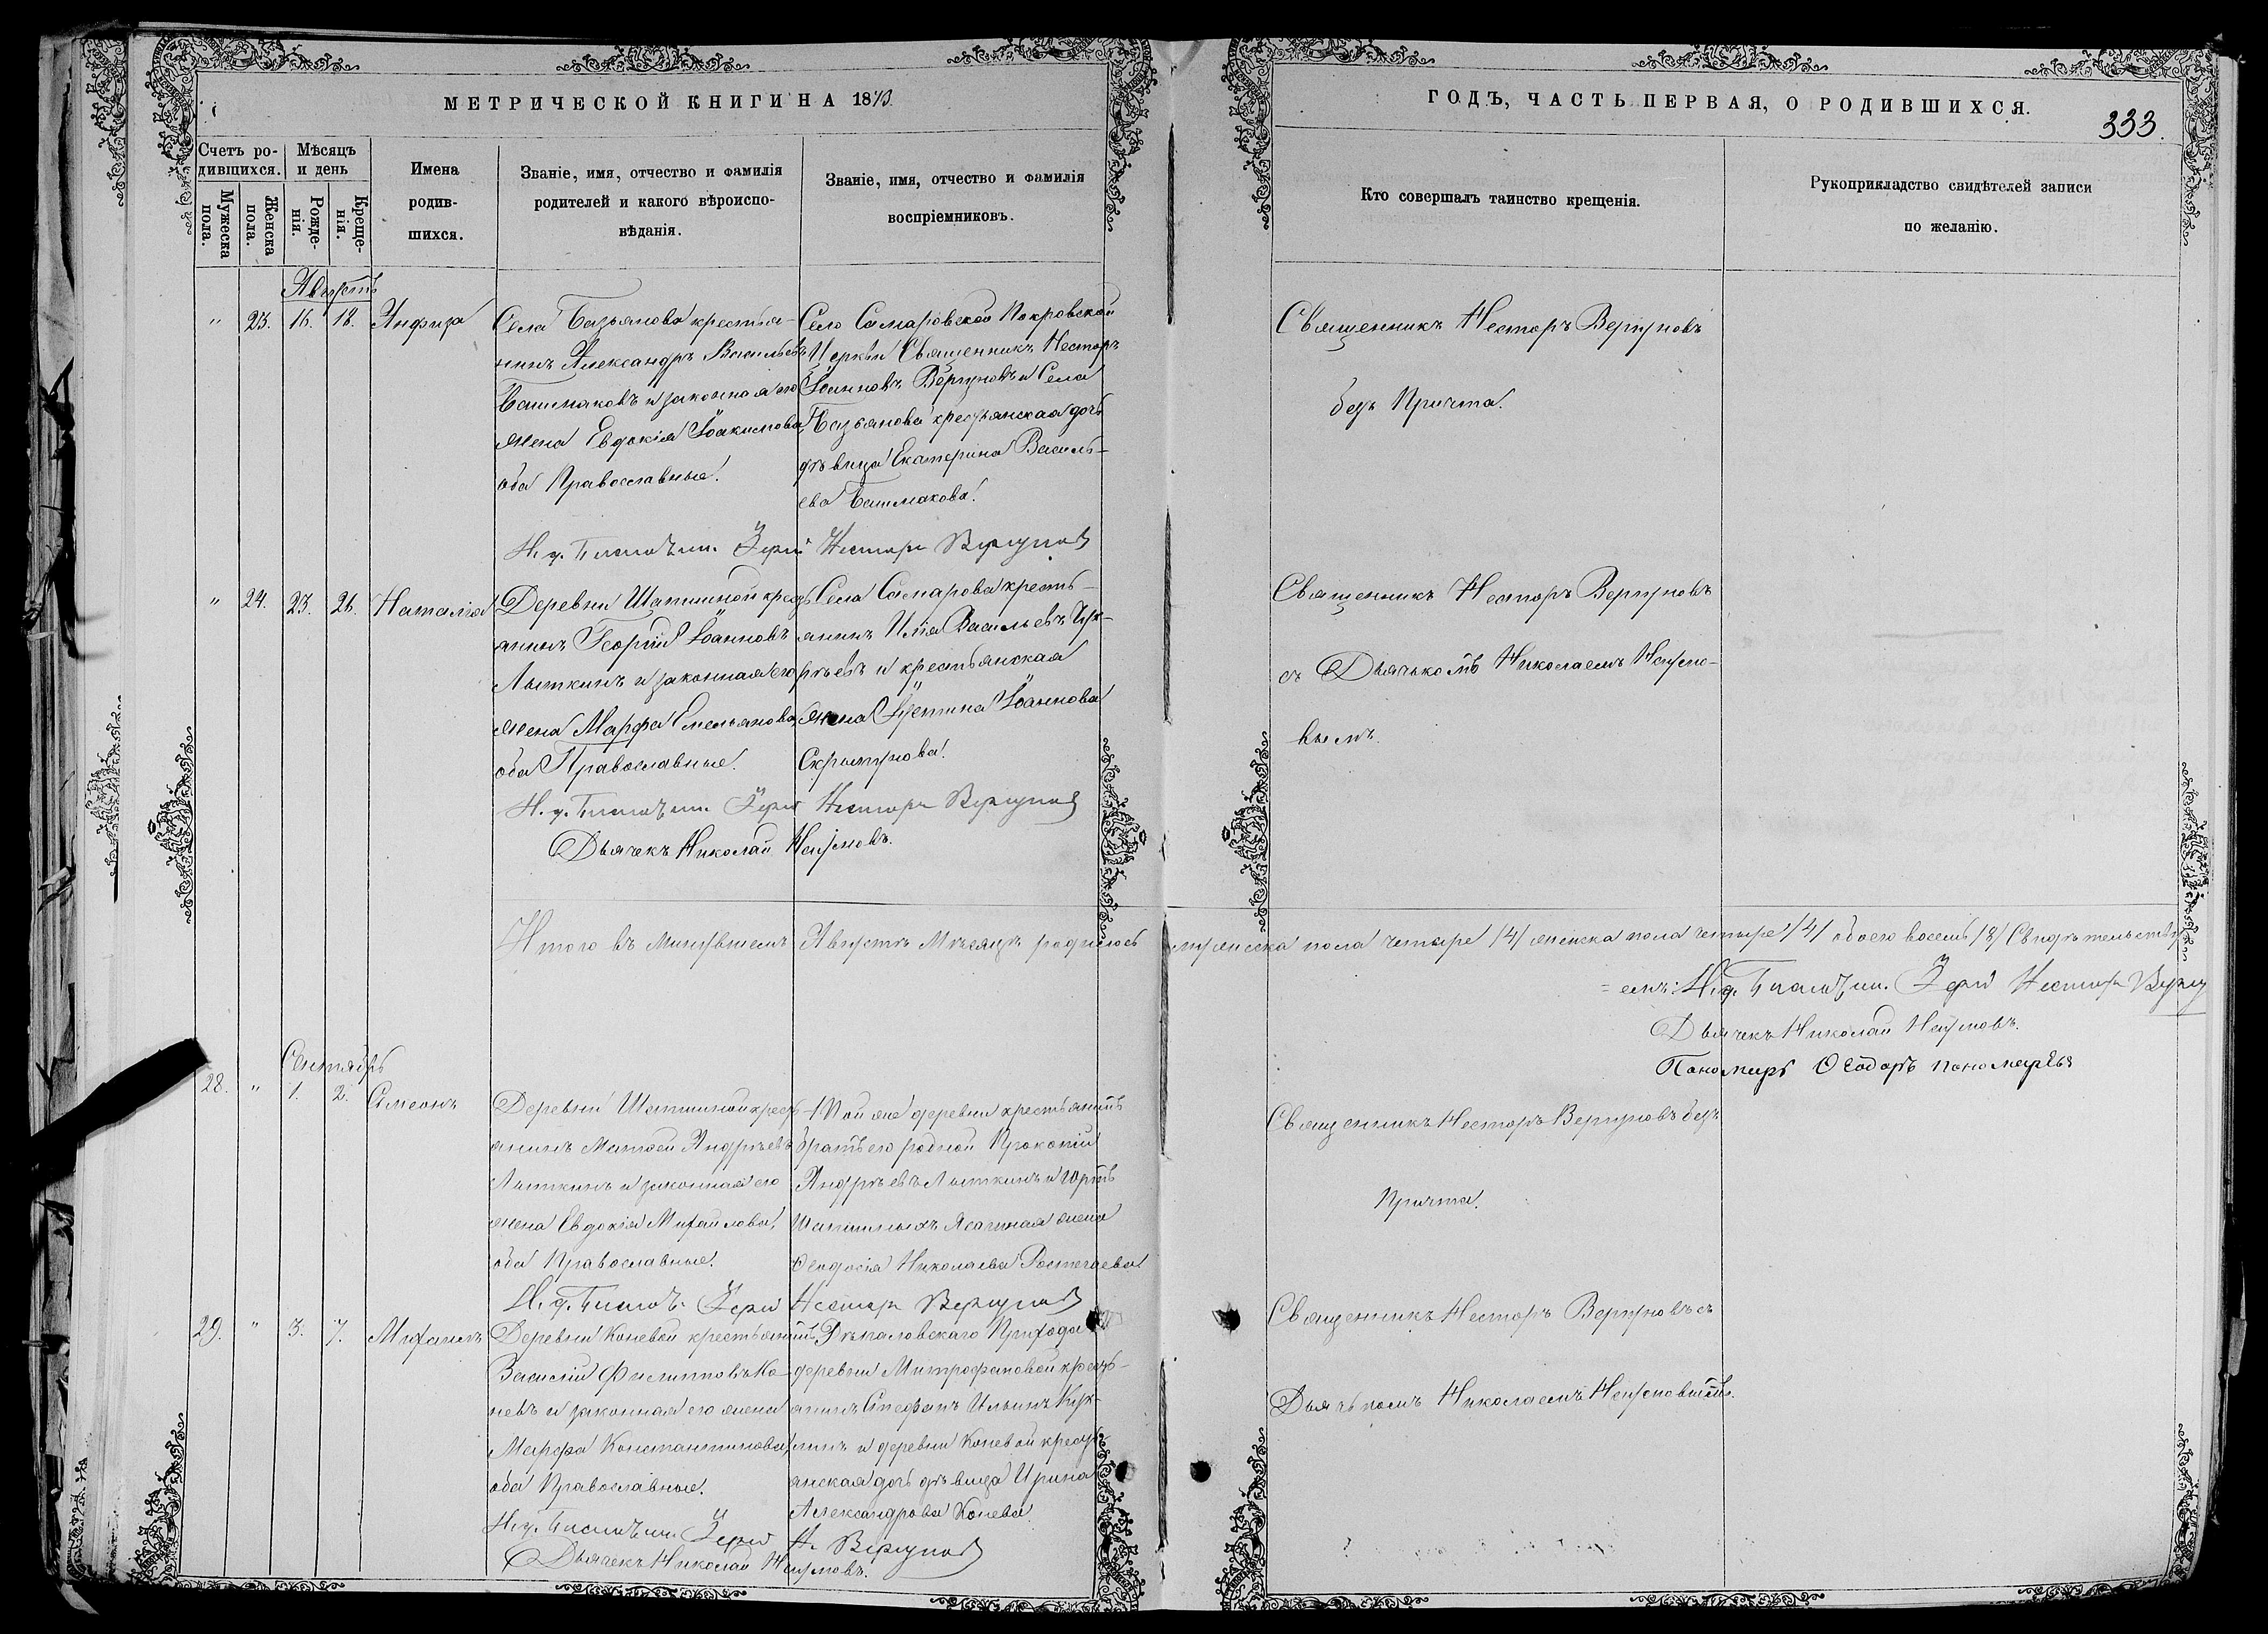 МЕТРИЧЕСКОЙ КНИГИ НА 1873
ГОДЪ, ЧАСТЬ ПЕРВАЯ, О РОДИВШИХСЯ.
333.
Счетъ ро-
дившихся.
Мѣсяцъ
и день
Мужеска
пола.
Женска
пола.
Рожде-
нія.
Креще-
нія.
Имена
родив-
шихся.
Званіе, имя, отчество и фамилія
родителей и какого вѣроиспо-
вѣданія.
Званіе, имя, отчество и фамилія
воспріемниковъ.
Кто совершалъ таинство крещенія.
Рукоприкладство свидѣтелей записи
по желанію.
Августъ
" 23. 16. 18. Анфиза
Села Базьянова крестья-
нинъ Александръ Васильевъ
Башмаковъ и законная его
жена Евдокія Іоакимова,
оба Православные.
Село Самаровской Покровской
Церкви Священникъ Несторъ
Іоанновъ Вергуновъ и Села
Базьянова крестьянская дочь
дѣвица Екатерина Василь-
ева Башмакова.
Священникъ Несторъ Вергуновъ
безъ Причта.
Несторъ Вергуновъ
" 24. 23. 26. Наталія
Деревни Шапшиной крест-
янинъ Георгій Іоанновъ
Лыткинъ и законная его
жена Марфа Емельянова
оба Православные.
Села Самарова кресть-
янинъ Илія Васильевъ Кук-
и крестьянская
жена Іустина Іоаннова
Скрипунова.
Священникъ Несторъ Вергуновъ
съ Дьячькомъ Николаемъ Неумо-
вымъ.
Несторъ Вергуновъ
Дьячекъ Николай Неумовъ.
Итого въ минувшемъ Августѣ Мѣсяцѣ родилось мужеска пола четыре /4/ женска пола четыре /4/ обоего восемь /8/ Свидѣтельству-
=емъ:
Дьячекъ Николай Неумовъ.
Пономарь Ѳеодоръ Пономаревъ
Сентябрь
28. " 1. 2. Симеонъ
Деревни Шапшиной крест-
янинъ Матѳей Андреевъ
Лыткинъ и законная его
жена Евдокія Михайлова,
оба Православные.
Той же деревни крестьянинъ
братъ его родной Прокопій
Андреевъ Лыткинъ и Юртъ
Шапшиныхъ Ясачная жена
Ѳеодосія Николаева
Священникъ Несторъ Вергуновъ безъ
Причта.
Несторъ Вергуновъ
29. " 3. 7. Михаилъ
Деревни Коневой крестьянинъ
Василій Филипповъ Ко-
невъ и законная его жена
Марфа Константинова,
оба Православные.
Рѣполовскаго Прихода
деревни Митрофановой кресть-
янинъ Стефанъ Ильинъ Кук-
линъ и деревни Коневой кресть-
янская дочь дѣвица Ирина
Александрова Конева
Священникъ Несторъ Вергуновъ съ
Дьячькомъ Николаемъ Неумовымъ.
Н. Вергуновъ
Дьячекъ Николай Неумовъ.